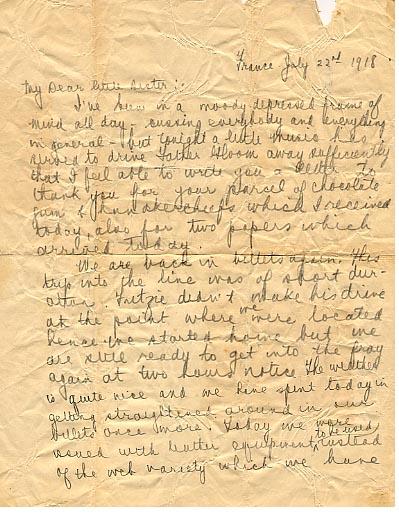 France July 22nd 1918
My Dear little Sister!!
I've been in a moody depressed frame of
mind all day - cussing everybody and everything
in general - but tonight a little music has
served to drive Father Gloom away sufficiently
that I feel able to write you a letter to
thank you for your parcel of chocolate
gum & handkerchiefs which I received
today, also for two papers which
arrived today.
We are back in billets again. This
trip into the line was of short dur-
ation. Fritzie didn't make his drive
at the point where we were located
hence we started home but we
are still ready to get into the fray
again at two hours notice. The weather
is quite nice and we have spent today in
getting straightened around in our
billets once more. Today we were
issued with leather equipment, to be used instead
of the web variety which we have